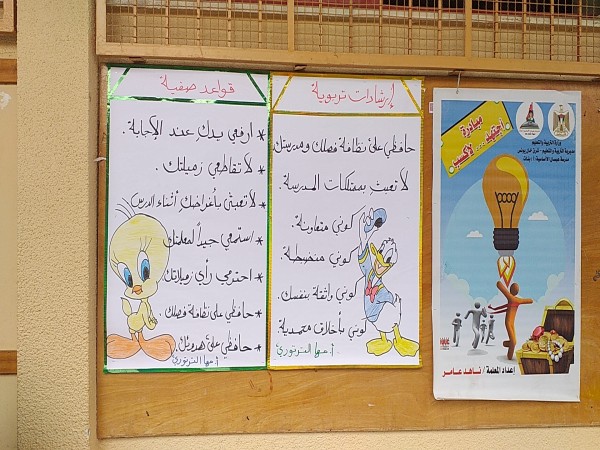 إرشادات تربوية
حافظي على نظافة فصلك ومدرستك
لا تعبث بممتلكات المدرسة.
كوني متعاونة.
كوني منضبطة.
كوني واثقة بنفسك.
كوني بأخلاق محمدية
أ. مها الترتوري
قواعد صفية
* ارفعي يدك عند الإجابة.
* لا تقاطعي زميلتك.
* لا تعبثي بأغراضك أثناء الدرس
* استمعي جيداً لمعلمتك
* احترمي رأي زميلاتك
* حافظي على نظافة فصلك.
* حافظي على هدوئك
أ. مها الترتوري
مبادرة
اجتهد... لأكسب
وزارة التربية والتعليم
مديرية التربية والتعليم - شرق خان يونس
إعداد المعلمة / ناهد عامر